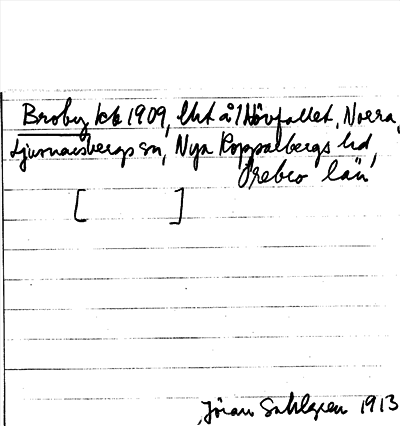 Broby kb 1909, Hörfallet, Norra,
Ljusnarsbergs sn, Nya Kopparbergs hd,
Örebro län
[ ]
Jöran Sahlgren 1913